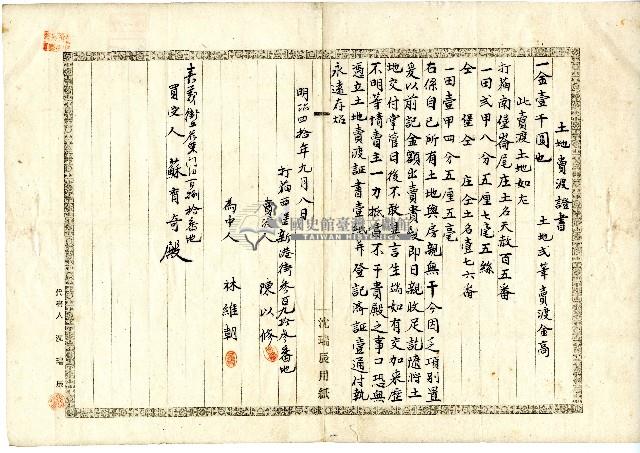 土地賣渡證書
一金壹千圓也　土地弍筆賣渡金高
此賣渡土地如左
打猫南堡崙尾庄土名天赦百五番
一田弍甲八分五厘七毫五絲
仝　堡仝　庄仝土名壹七六番
一田壹甲四分五厘五毫
右係自己所有土地與房親無干今因乏項別置
爰以前記金額出賣貴殿即日親收足訖隨將土
地交付掌管日後不敢異言生端如有交加來歷
不明等情賣主一力抵當不干貴殿之事口恐無
憑立土地賣渡証書壹紙并登記済証壹通付執
永遠存炤
明治四拾年九月八日
打猫西堡新港街參百九拾參番地
賣渡人　陳以修
為中人　林維朝
嘉義街
番地
買受人　蘇育奇殿
沈瑞辰用紙
代書人　沈瑞辰
國史館臺灣文獻館
TAIWAN HISTORICA